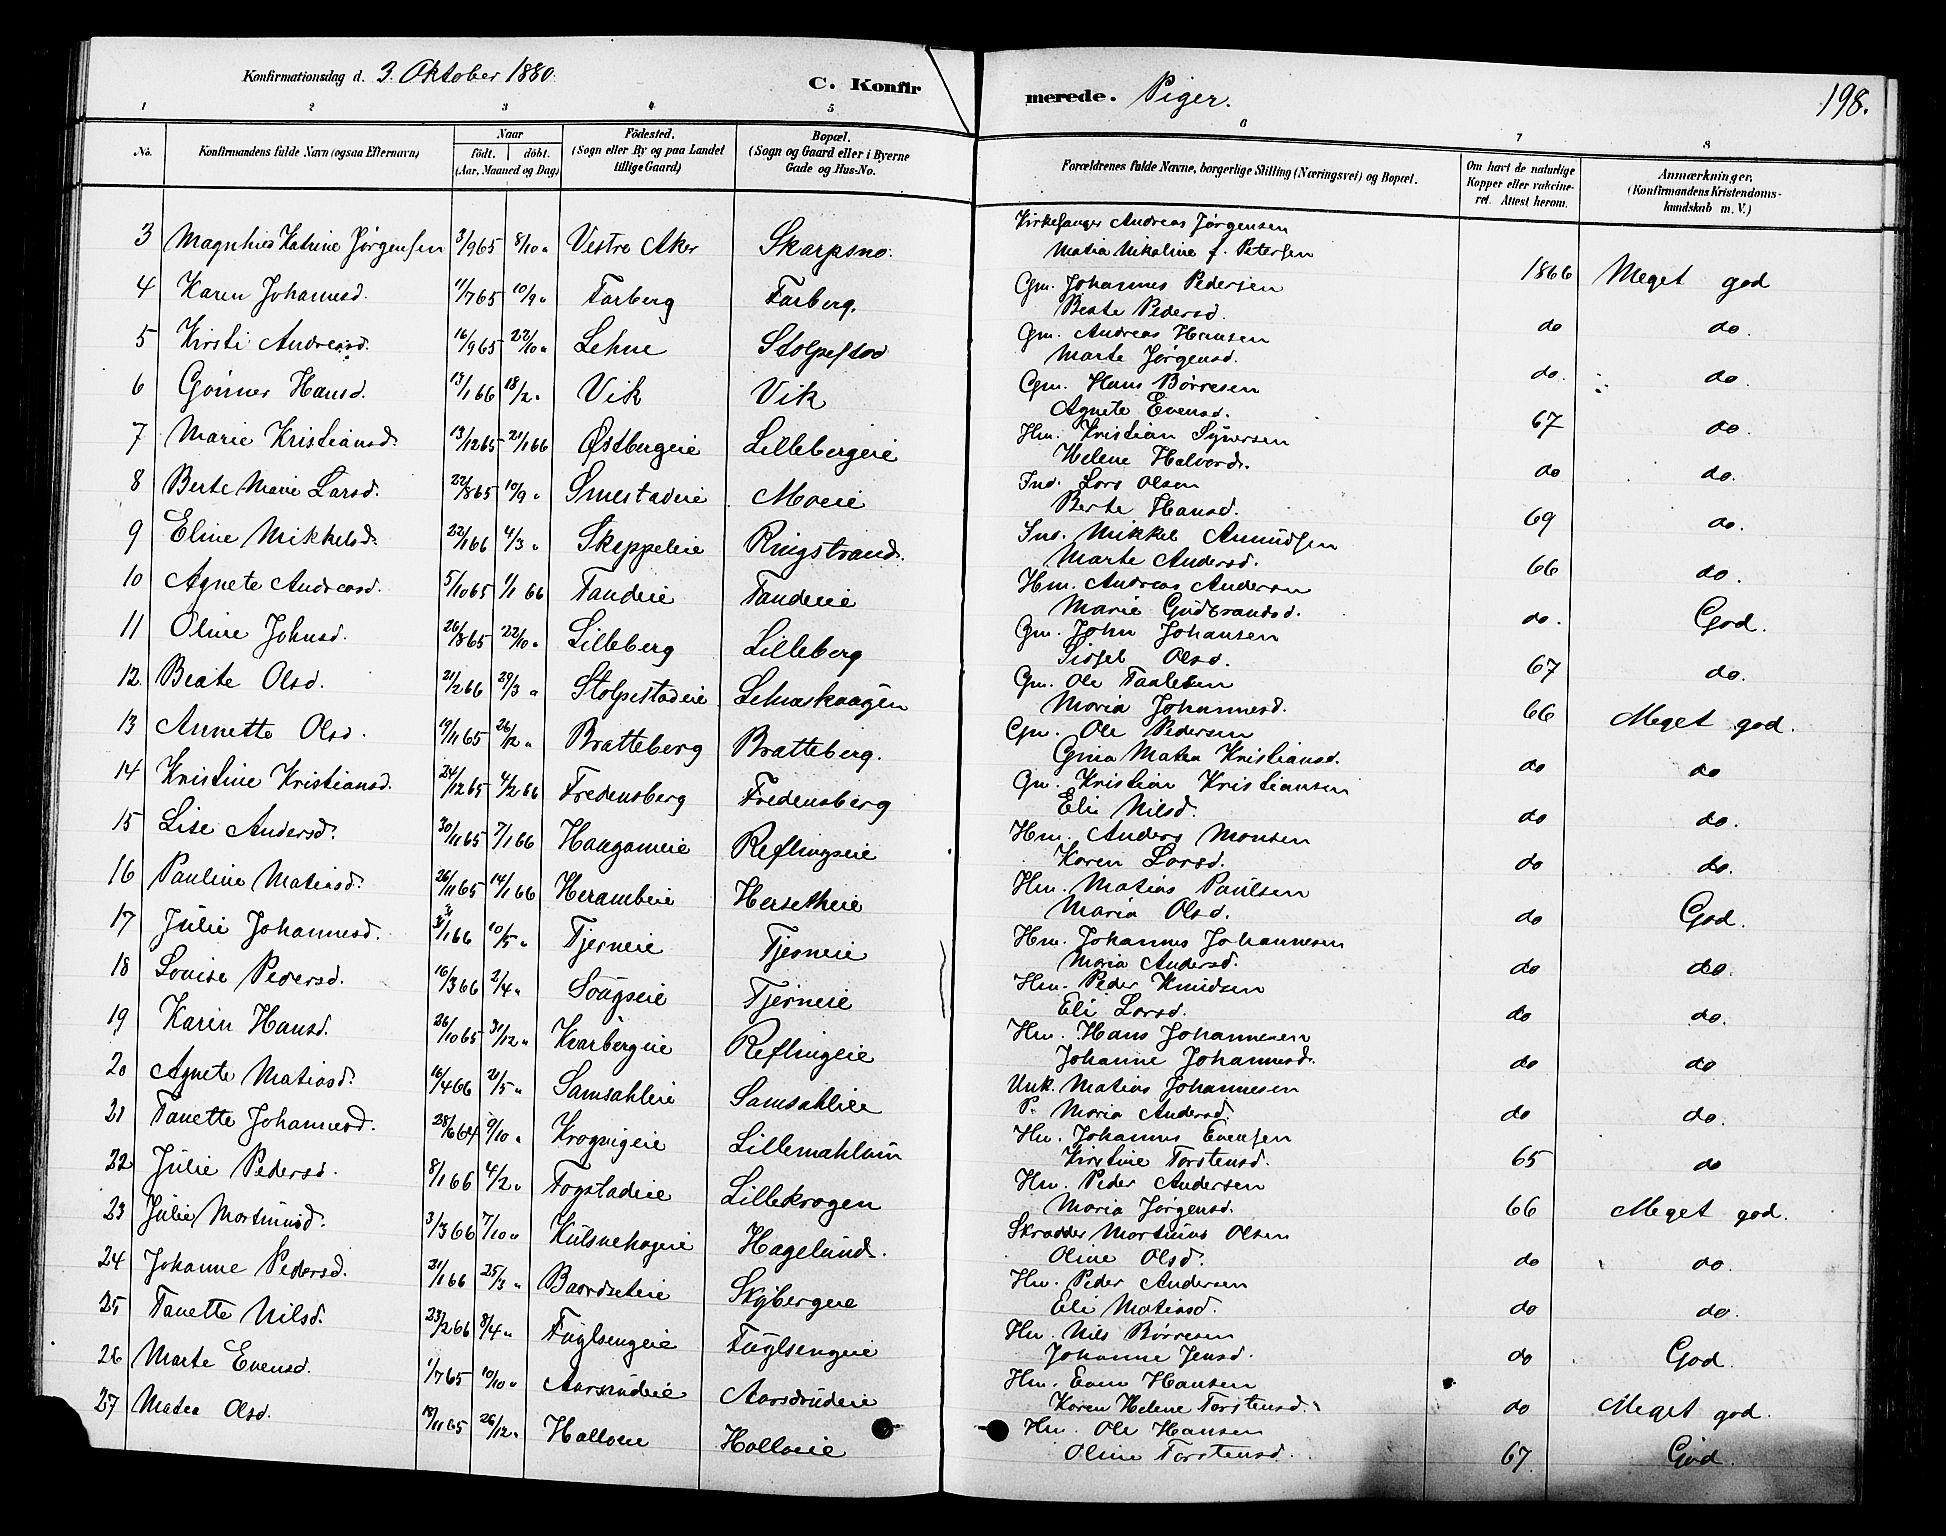 Konfirmationsdag d. 3. Oktober 1880.
C. Konfir
merede. Piger.
198.
1 2 3 4 5 6 7 8
No.
Konfirmandens fulde Navn (ogsaa Efternavn)
Naar
födt. döbt.
(Aar, Maaned og Dag)
Födested.
(Sogn eller By og paa Landet
tillige Gaard)
Bopæl.
(Sogn og Gaard eller i Byerne
Gade og Hus-No.
Forældrenes fulde Navne, borgerlige Stilling (Næringsvei) og Bopæl.
Om havt de naturlige
Kopper eller vakcine-
ret. Attest herom.
Anmærkninger.
(Konfirmandens Kristendoms-
kundskab m. V.)
3 Katrine Jørgensen 3/9 65 8/10 " Vestre Aker Skarpsno. Kirkesanger Andreas Jørgensen
Matia Nikoline f. Petersen 1866 Meget god
4 Karen Johannesd. 11/7 65 10/9 " Farberg Farberg. Gm. Johannes Pedersen
Beate Pedersd. do do.
5 Kirsti Andreasd. 16/9 65 22/10 " Lehne Stolpestad Gm. Andreas Hansen
Marte Jørgensd. do. do.
6 Gunner Hansd. 13/1 66 18/2 " Vik Vik Gm. Hans Børresen
Agnete Evensd. 67 do.
7 Marie Kristiansd. 13/12 65 21/1 66 Østbergeie Lillebergeie Hm. Kristian Syversen
Helene Halvord. do do.
8 Berte Marie Larsd. 22/8 65 10/9 " Smestadeie Moeie Ind. Lars Olsen
Berte Hansd. 69 do.
9 Eline Mikkelsd. 22/1 66 4/3 " Skeppeleie Ringstrand. Ind. Mikkel Amundsen
Marte Andersd. 66 do.
10 Agnete Andreasd. 5/10 65 1/1 66 Tandeie Tandeie Hm. Andreas Andersen
Marie Gudbrandsd. do. God.
11 Oline Johnsd. 26/8 65 22/10 " Lilleberg Lilleberg Gm. John Johansen
Sidsel Olsd. 67 do.
12 Beate Olsd. 21/2 66 29/3 " Stolpestadeie Lehneskaagen Gm. Ole Paalesen
Maria Johannesd. 66 Meget god.
13 Annette Olsd. 19/11 65 26/12 " Bratteberg Bratteberg. Gm. Ole Pedersen
Gina Matea Kristiansd. do do
14 Kristine Kristiansd. 24/12 65 4/2 66 Fredensberg Fredensberg Gm. Kristian Kristiansen
Eli Nilsd. do do.
15 Lise Andersd. 30/11 65 7/1 66 Haugameie Reflingseie Hm. Anders Monsen
Karen Larsd. do do.
16 Pauline Matiasd. 26/11 65 14/1 66 Herambeie Hersetheie Hm. Matias Paulsen
Maria Olsd. do God.
17 Julie Johannesd. 31/1 66 10/5 " Tjerneie Tjerneie Hm. Johannes Johannesen
Maria Andersd. do do.
18 Lovise Pedersd. 16/3 66 2/4 " Sougseie Tjerneie Hm. Peder Knudsen
Eli Larsd. do do.
19 Karin Hansd. 26/10 65 31/12 " Kvarbergeie Reflingeie Hm. Hans Johannesen
Johanne Johannesd. do do
20 Agnete Matiasd. 16/4 66 21/5 " Samsahleie Samsahleie Unk. Matias Johannesen
P. Maria Andersd. do do.
21 Tanette Johannesd. 28/6 64 9/10 " Krogvigeie Lillemahlum Hm. Johannes Evensen
Kirstine Torstensd. 65 do
22 Julie Pedersd. 8/1 66 4/2 " Fogstadeie Lillekrogen Hm. Peder Andersen
Maria Jørgensd. 66 Meget god.
23 Julie Martinusd. 3/3 66 7/10 " Kulsvehageie Hagelund. Skradder Martinus Olsen
Oline Olsd. do do.
24 Johanne Pedersd. 21/1 66 25/3 " Baardseteie Skybergeie Hm. Peder Andersen
Eli Matiasd. do do.
25 Tanette Nilsd. 23/2 66 8/4 " Fuglsengeie Fuglsengeie Hm. Nils Børresen
Johanne Jensd. do God.
26 Marte Evensd. 1/7 65 10/10 " Aarsrudeie Aarsdrudeie Hm. Even Hansen
Karen Helene Torstensd. do Meget god.
27 Matea Olsd. 19/11 65 26/12 " Holloeie Holloeie Hm. Ole Hansen
Oline Torstensd. 67. God.